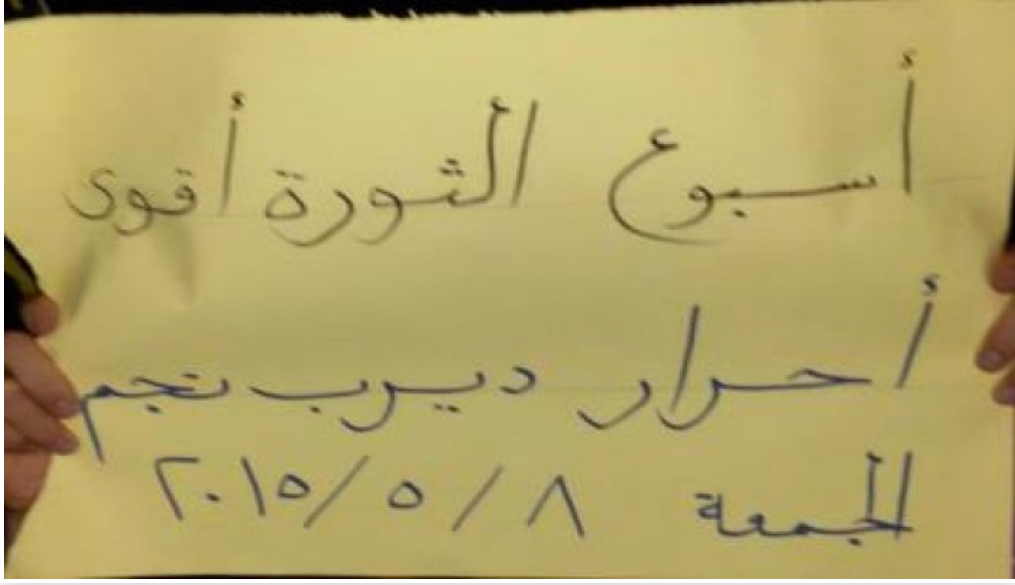 أسبوع الثورة أقوى
أحرار ديرب نجم
الجمعة ٨ / ٥ / ٢٠١٥